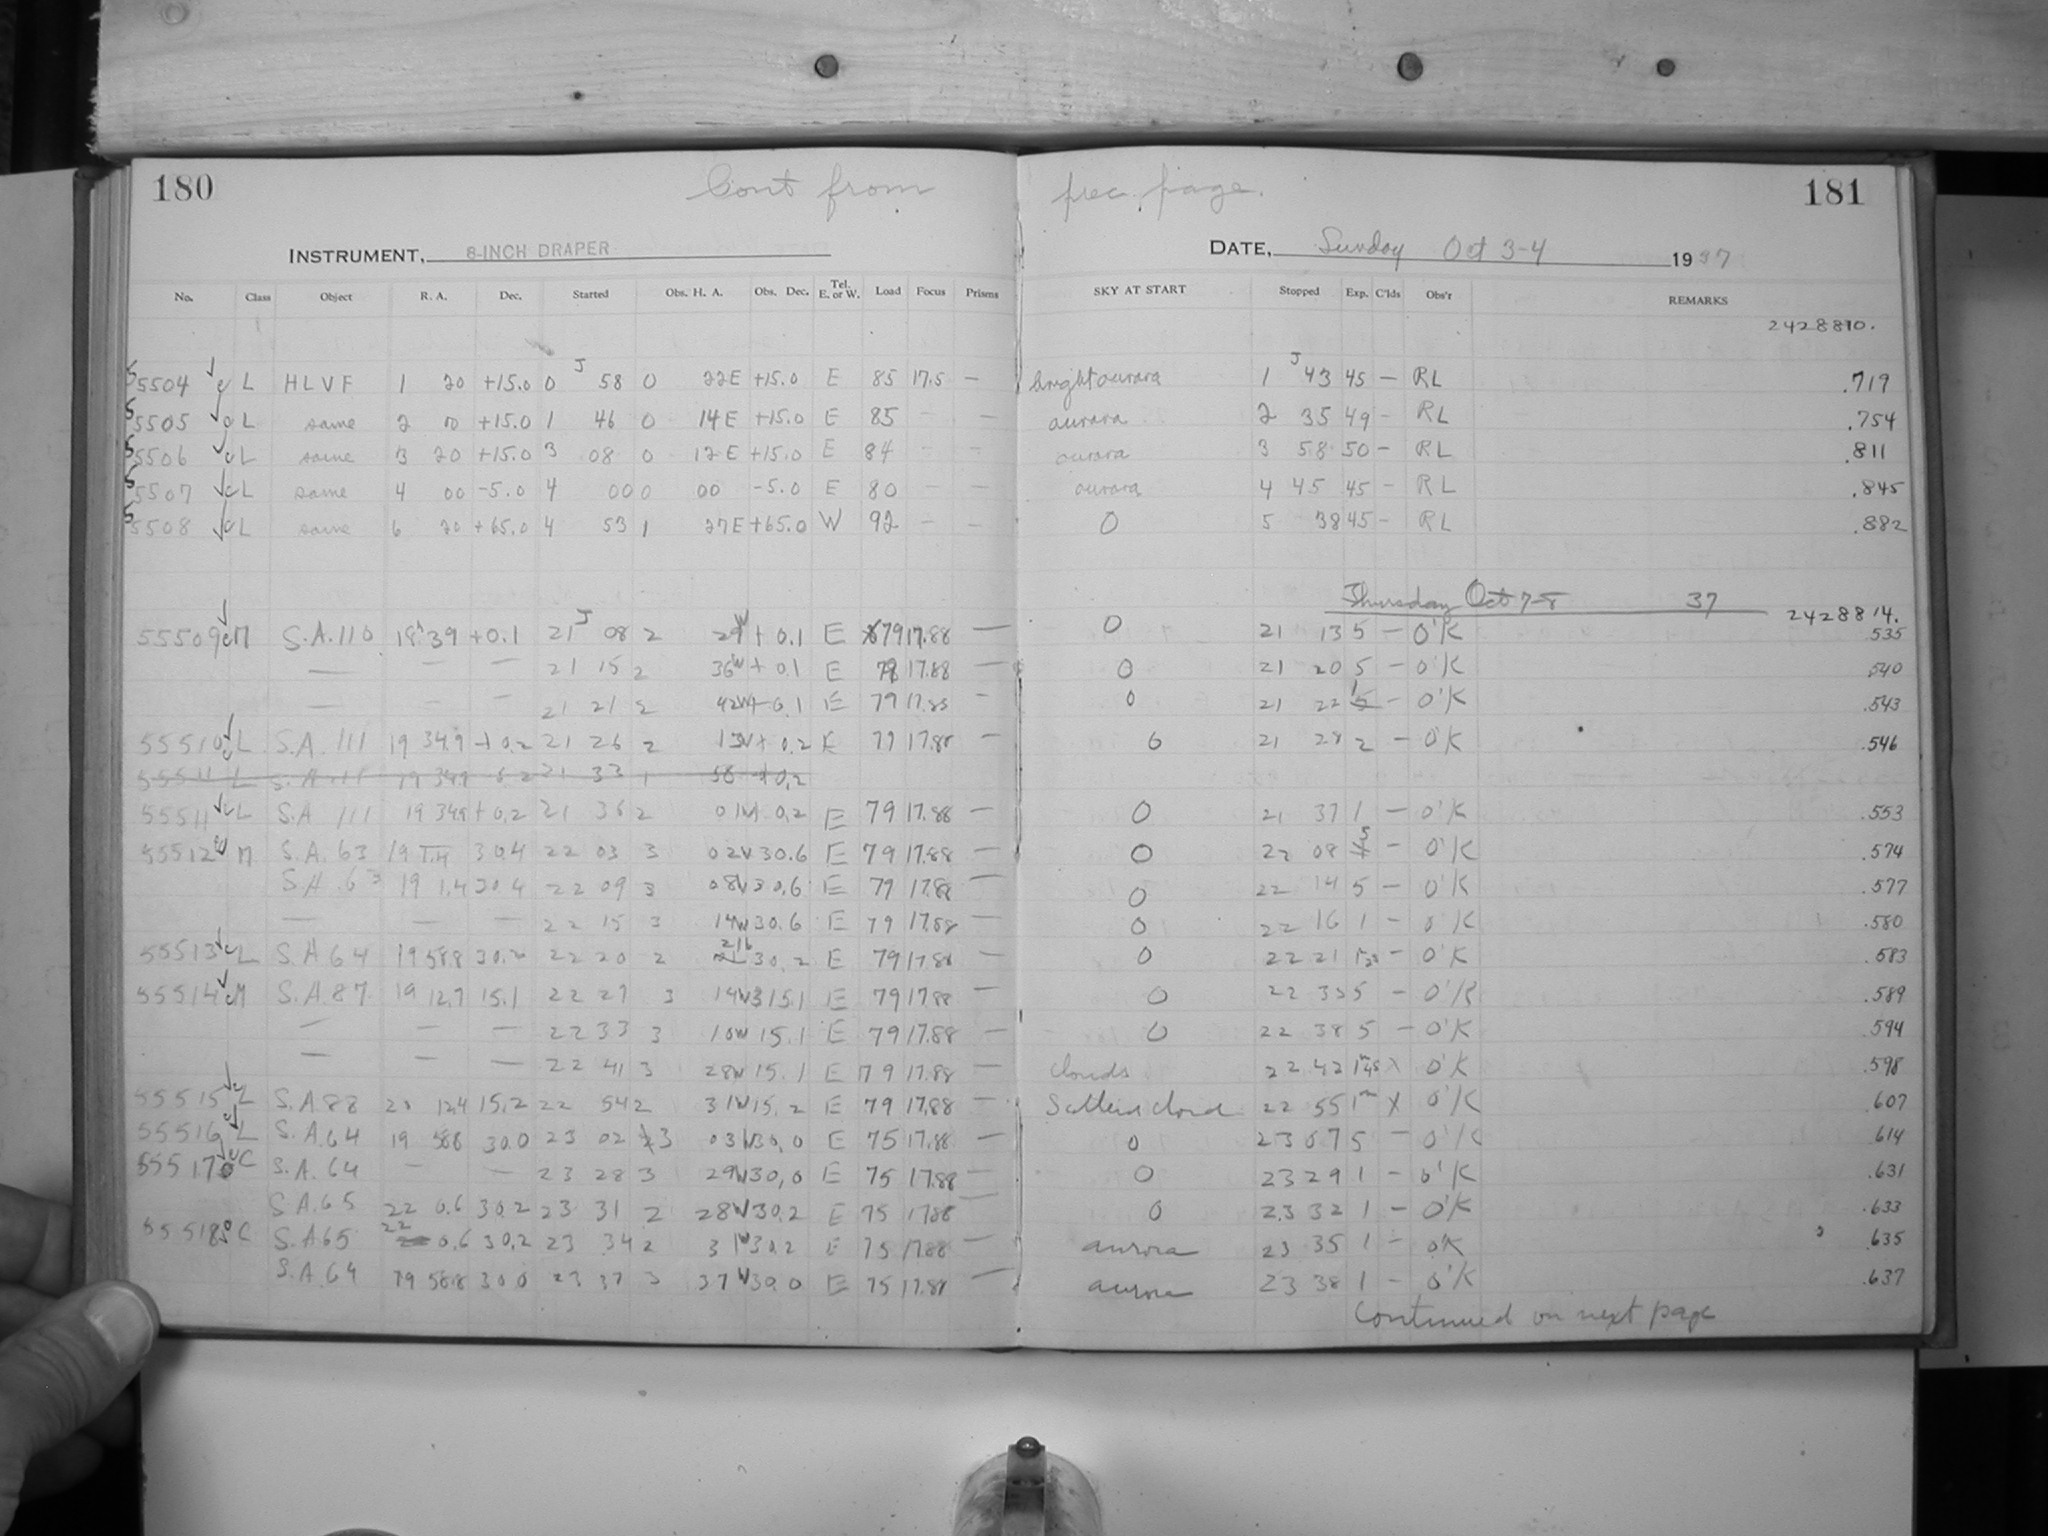 180 Cont from prec. page. 181
INSTRUMENT, 8-INCH DRAPER DATE, Sunday Oct 3-4 1937
No. Class Object R. A. Dec. Started Obs. H. A. Obs. Dec. Tel. E. or W. Load Focus Prisms SKY AT START Stopped Exp. C'lds Obs'r REMARKS
2428810.
55504 L HLVF 1 20 +15.0 0 J 58 0 22E +15.0 E 85 17.5 — bright aurora 1 J 43 45 — RL .719
55505 L same 2 00 +15.0 1 46 0 14E +15.0 E 85 - — aurora 2 35 49 - RL .754
55506 L same 3 20 +15.0 3 08 0 12E +15.0 E 84 - - aurora 3 58 50 - RL .811
55507 L same 4 00 -5.0 4 00 0 00 -5.0 E 80 - - aurora 4 45 45 - RL .845
55508 L same 6 20 +65.0 4 53 1 27E +65.0 W 92 - - 0 5 38 45 - RL .882
Thursday Oct 7-8 37 2428814.
55509 M S.A.110 18 39 +0.1 21 J 08 2 29W +0.1 E 79 17.88 — 0 21 13 5 - O'K .535
— — — 21 15 2 36W +0.1 E 78 17.88 — 0 21 20 5 - O'K .540
— — — 21 21 2 42W +0.1 E 79 17.88 - 0 21 22 1 - O'K .543
55510 L S.A. 111 19 34.9 +0.2 21 26 2 13W +0.2 E 79 17.88 0 21 28 2 - O'K .546
55511 L S.A. 111 19 34.9 0.2 21 33 1 58 +0.2
55511 L S.A 111 19 34.9 +0.2 21 36 2 01W 0.2 E 79 17.88 — 0 21 37 1 - O'K .553
55512 M S.A. 63 19 1.4 30.4 22 03 3 02W 30.6 E 79 17.88 — 0 22 08 5 - O'K .574
S.A. 63 19 1.4 30.4 22 09 3 08W 30.6 E 79 17.88 — 0 22 14 5 - O'K .577
— — — 22 15 3 14W 30.6 E 79 17.88 — 0 22 16 1 - O'K .580
55513 L S.A 64 19 58.8 30.2 22 20 2 21W 30.2 E 79 17.88 — 0 22 21 - O'K .583
55514 M S.A. 87 19 12.7 15.1 22 27 3 14W 15.1 E 79 17.88 — 0 22 5 - O'K .589
— — — 22 33 3 W 15.1 E 79 17.88 — 0 22 38 5 - O'K .594
— — — 22 41 3 28W 15.1 E 79 17.88 — clouds 22 42 O'K .598
55515 L S.A 88 20 12.4 15.2 22 54 2 31W 15.2 E 79 17.88 — Scattered cloud 22 55 1m X O'K .607
55516 L S.A. 64 19 58.8 30.0 23 02 3 03W 30.0 E 75 17.88 — 0 23 07 5 - O'K .614
55517 C S.A. 64 — — 23 28 3 29W 30.0 E 75 17.88 — 0 23 29 1 - O'K .631
S.A. 65 22 0.6 30.2 23 31 2 28W 30.2 E 75 17.88 0 23 32 1 - O'K .633
55518 C S.A 65 22 0.6 30.2 23 34 2 31W 30.2 E 75 17.88 — aurora 23 35 1 - O'K .635
S.A. 64 19 58.8 30.0 23 37 3 37W 30.0 E 75 17.88 — aurora 23 38 1 - O'K .637
Continued on next page